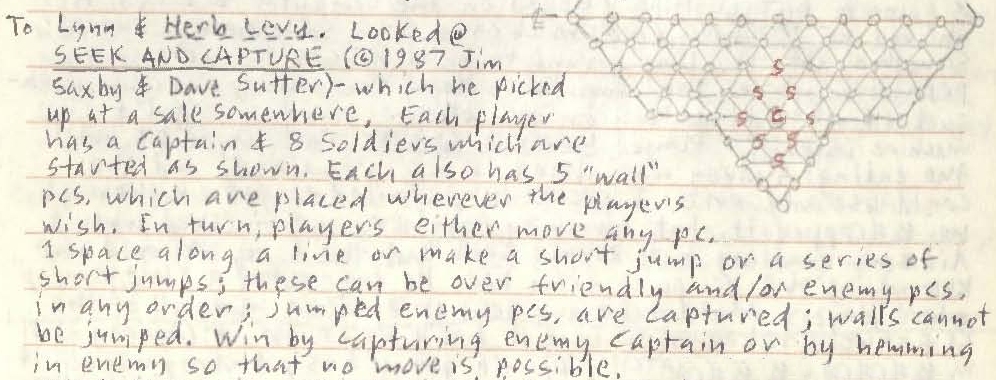 To Lynn & Herb Levy. Looked @
SEEK AND CAPTURE (© 1987 Jim
Saxby & Dave Sutter) - which he picked
up at a sale somewhere. Each player
has a Captain & 8 Soldiers which are
started as shown. Each also has 5 "wall"
pcs. which are placed wherever the players
wish. In turn, players either move any pc.
1 space along a line or make a short jump or a series of
short jumps; these can be over friendly and/or enemy pcs.
in any order; jumped enemy pcs. are captured; walls cannot
be jumped. Win by capturing enemy Captain or by hemming
in enemy so that no move is possible.
S
S S
S C S
S S
S